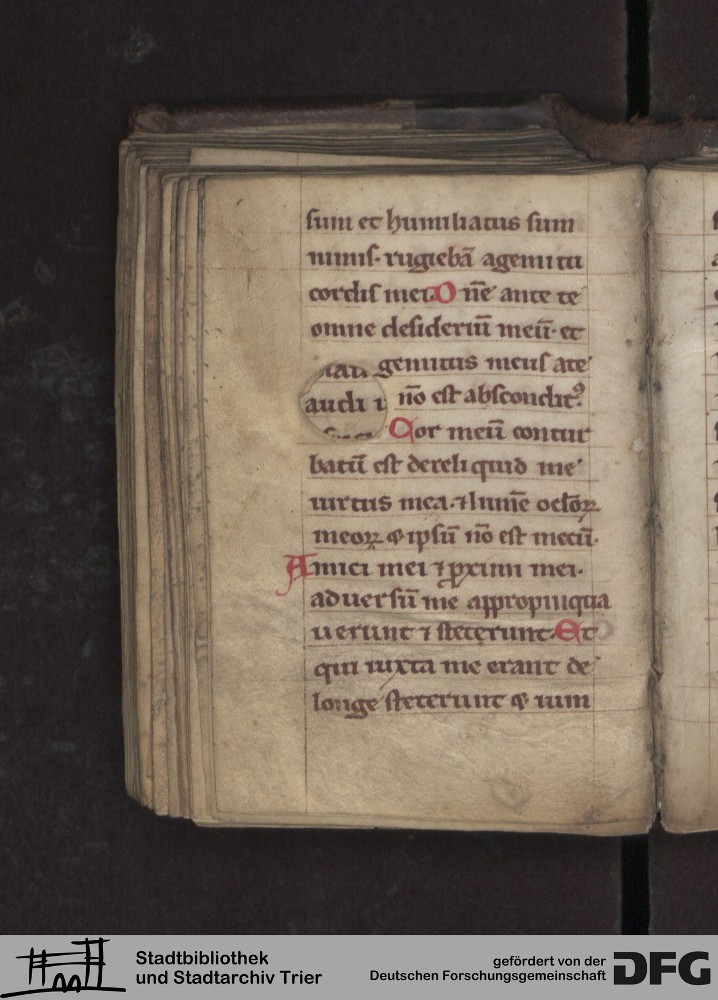 sum et humiliatus sum
nimis· rugiebā agemitu
cordis mei· Dn̄e ante te
omne desideriū meū· et
gemitus meus ate
audi i nō est abscondit᷒·
Cor meū contur
batū est dereliquid me
uirtus mea· ⁊ lumē oclōꝝ
meoꝝ ⁊ ipsū nō est mecū·
Amici mei ⁊ ꝓximi mei·
aduersū me appropinqua
uerunt ⁊ steterunt· Et
qui iuxta me erant de
longe steterunt ⁊ uim
Stadtbibliothek
und Stadtarchiv Trier
gefördert von der
Deutschen Forschungsgemeinschaft DFG